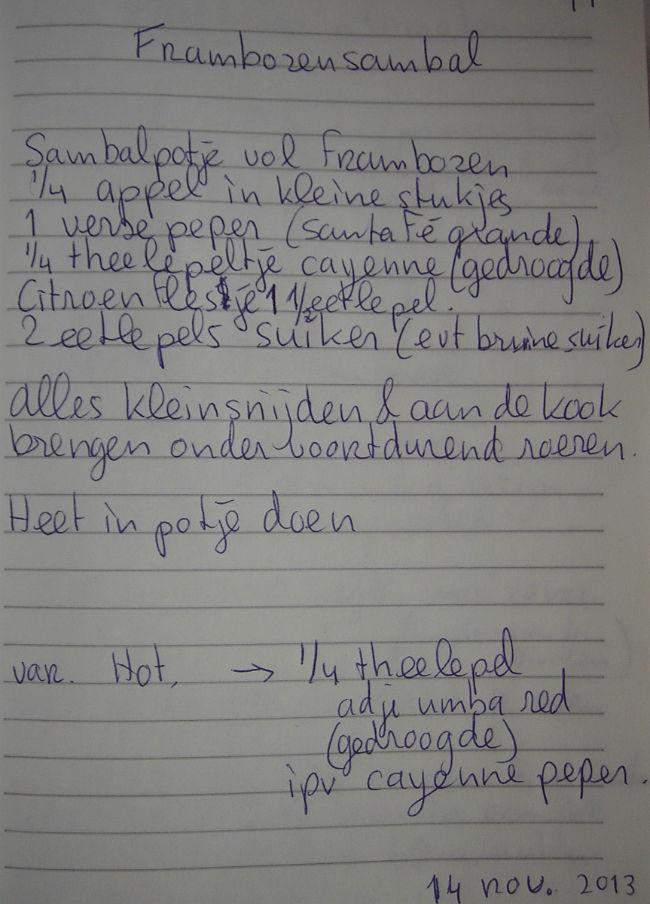 Frambozensambal
Sambalpotje vol Frambozen
1/4 appel in kleine stukjes
1 verse peper (santa Fé grande)
1/4 theelepeltje cayenne (gedroogde)
Citroen flesje 1 1/2 eetlepel.
2 eetlepels suiker (evt bruine suiker)
alles kleinsnijden & aan de kook
brengen onder voortdurend roeren.
Heet in potje doen
var. Hot, → 1/4 theelepel
adji umba red
(gedroogde)
ipv cayenne peper.
14 nov. 2013